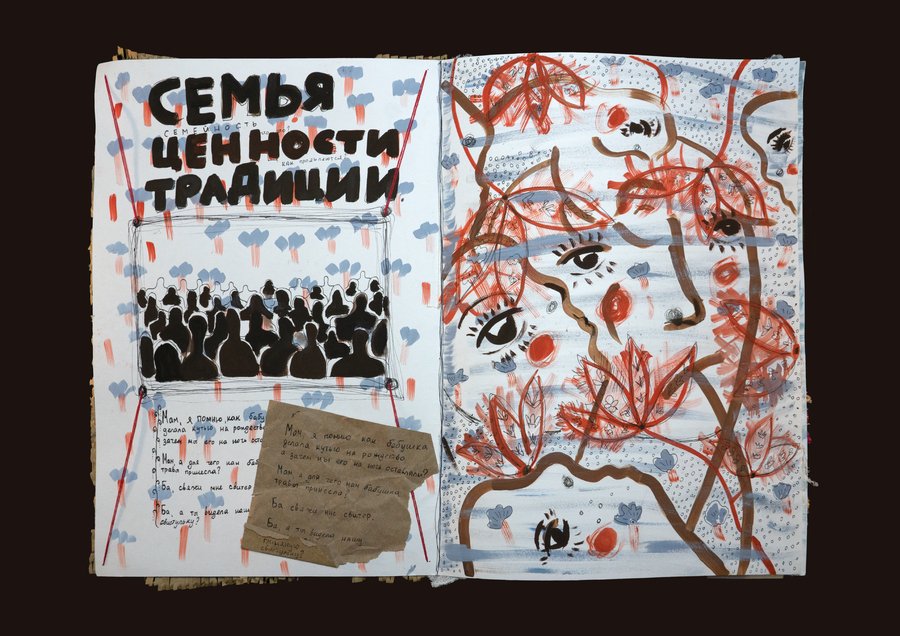 СЕМЬЯ
СЕМЕЙНОСТЬ
ЦЕННОСТИ
КАК
ТРАДИЦИИ
Мам, я помню как бабу
делала кутью на рождество
затем мы его на ночь оста
Мам, а для чего нам ба
травы принесла?
Ба свяжи мне свитер
Ба, а ты видела наш
Мам, я помню как бабушка
делала кутью на рождество
а затем мы его на ночь оставляли?
Мам а для чего нам бабушка
травы принесла?
Ба свяжи мне свитер.
Ба, а ты видела нашу